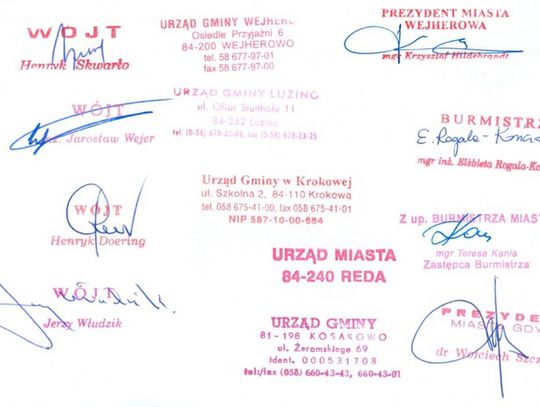 WÓJT
Henryk Skwarło
WÓJT
inż. Jarosław Wejer
WÓJT
Henryk Doering
WÓJT
Jerzy Włudzik
URZĄD GMINY WEJHERO
Osiedle Przyjaźni 6
84-200 WEJHEROWO
tel. 58 677-97-01
fax 58 677-97-00
URZĄD GMINY LUZINO
ul. Ofiar Stutthofu 11
84-242 Luzino
tel. (0-58) 678-20-68, fax (0-58) 678-23-25
Urząd Gminy w Krokowej
ul. Szkolna 2, 84-110 Krokowa
tel. 058 675-41-00, fax 058 675-41-01
NIP 587-10-00-684
URZĄD MIASTA
84-240 REDA
URZĄD GMINY
81-198 KOSAKOWO
ul. Żeromskiego 69
ident. 000531708
tel./fax (058) 660-43-43, 660-43-01
PREZYDENT MIASTA
WEJHEROWA
mgr Krzysztof Hildebrandt
BURMISTRZ
E. Rogala-Kończa
mgr inż. Elżbieta Rogala-Ko
Z up. BURMISTRZA MIAS
mgr Teresa Kania
Zastępca Burmistrza
PREZYDE
MIASTA GDY
dr Wojciech Szcz